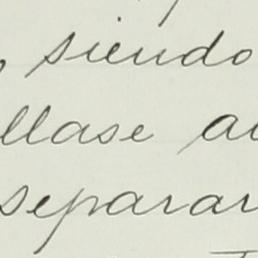 , siendo
llase a
separar